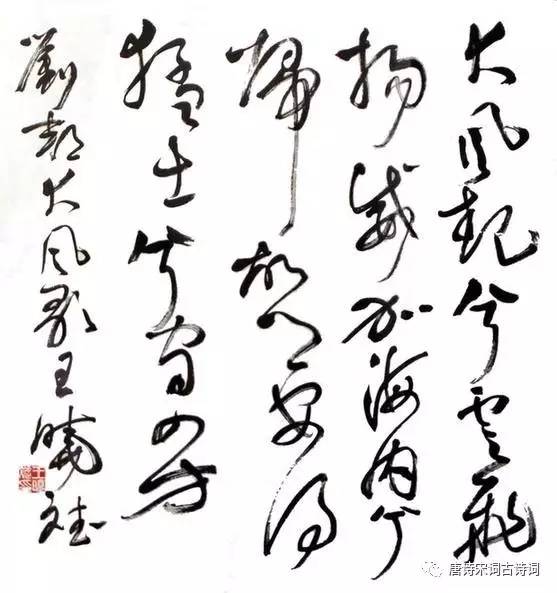 大风起兮云飛
扬威加海内兮
归故乡安得
猛士兮守四方
劉邦大风歌王曉
唐诗宋词古诗词